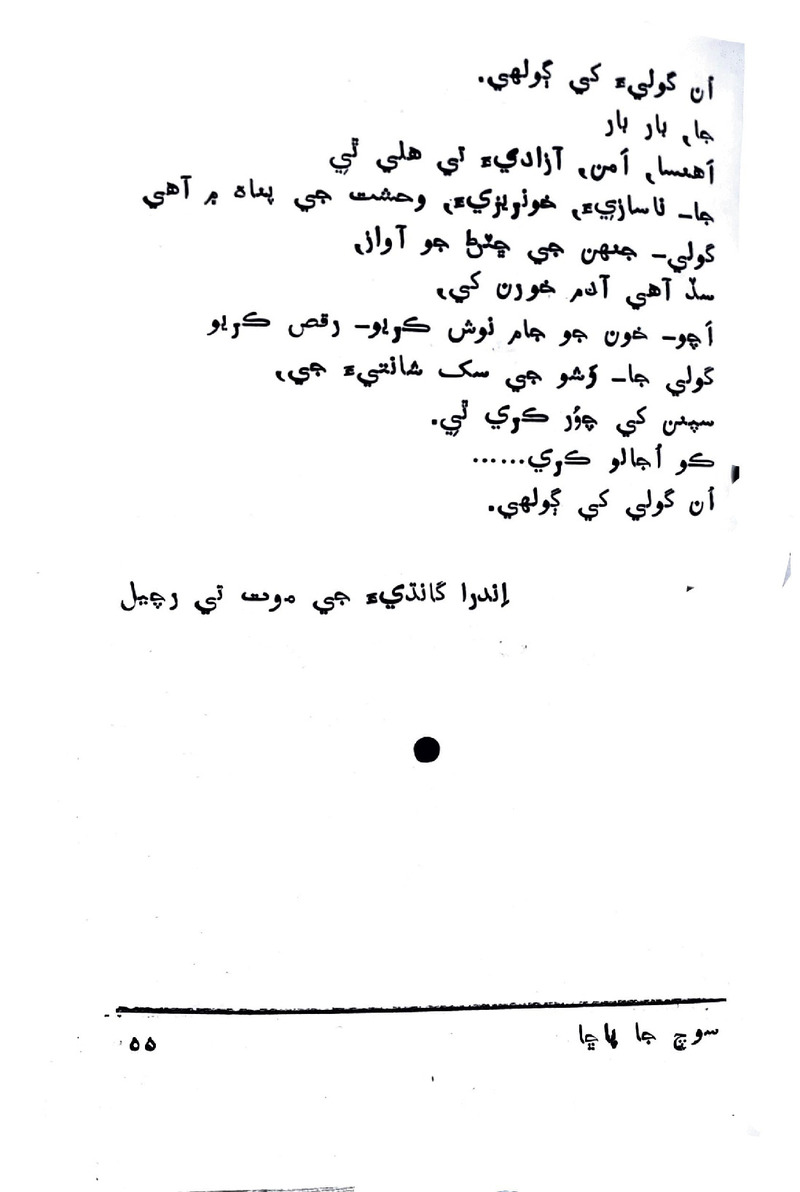 اُن گوليءَ کي ڳولهي.
جا، بار بار
اَهنسا، اَمن، آزاديءَ تي هلي ٿي
جا- ناسازيءَ، خونريزيءَ، وحشت جي پناھ ۾ آهي
گولي- جنهن جي ڇٽڻ جو آواز،
سڏ آهي آدم خورن کي،
اَچو- خون جو جام نوش ڪريو- رقص ڪريو
گولي جا- وِشو جي سڪ شانتيءَ جي،
سپنن کي چُور ڪري ٿي.
ڪو اُجالو ڪري......
اُن گولي کي ڳولهي.
اِندرا گانڌيءَ جي موت تي رچيل
سوچ جا پاڇا
۵۵